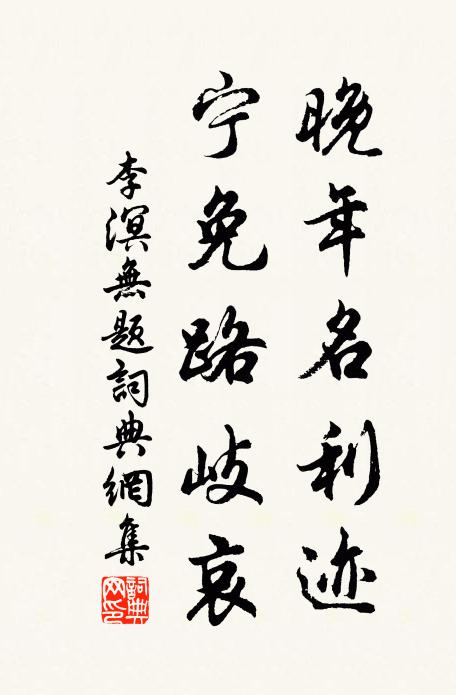 晚年名利迹
宁免路岐哀
李溟無题詞典網集
詞典网印